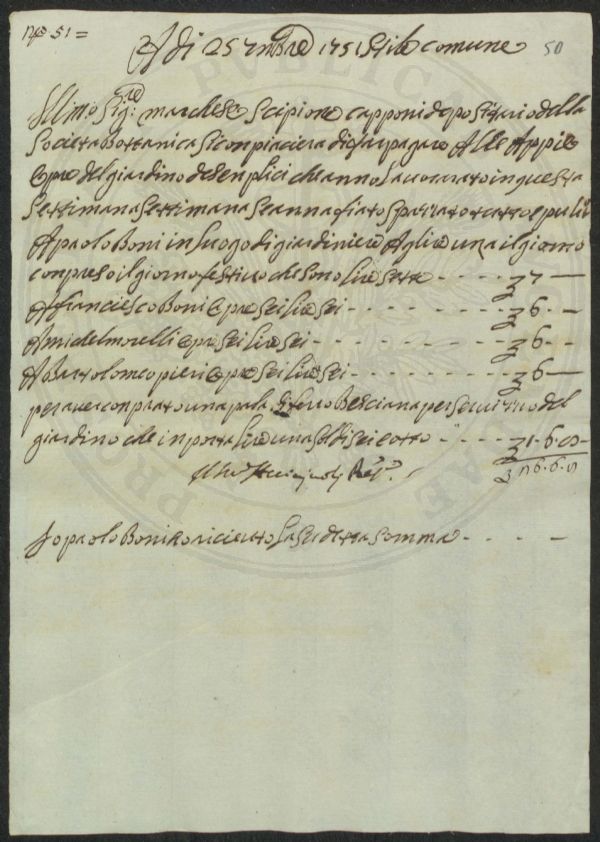 No 51 = 50
A di 25 7mbre 1751 Stile comune
Illmo Sig:re marchese Scipione capponi depositario della
Societa Bottanica Si conpiacera di far pagare A lle Appie
Opre del giardino de Senplici che anno Lavorato in questa
Settimana Settimana Se anna fiato Spazzato e
A paolo Boni in luogo di giardiniere A lire una il giorno
conpreso il giorno festivo che Sono lire Sette - - - - 7 —
A franciesco Boni Opre Sei lire Sei - - - - - - - 6 · —
A mi del morelli Opre Sei lire Sei - - - - - - - - 6 - -
A Bartolomeo pieri Opre Sei lire Sei - - - - - - - 6 —
per aver conprato una pala di fero Besciana per Servizzio del
giardino che inporta lire una Soldi Sei e otto - - - - - 1 · 6 · 8 —
6 · 6 · 8
Io paolo Boni o riceuto La Sudetta Somma - - - -
PUBLICA